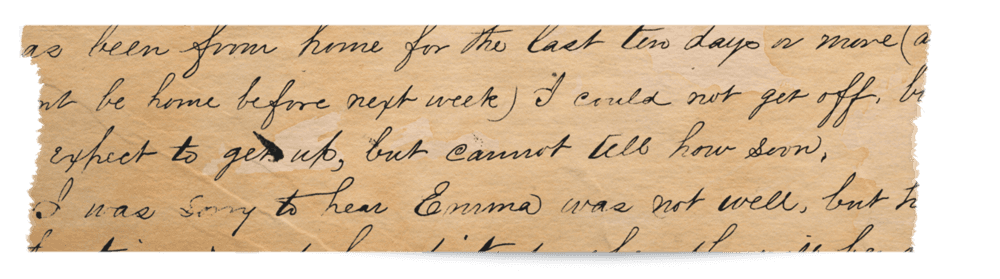 as been from home for the last ten days or more (a
nt be home before next week) I could not get off, b
expect to get up, but cannot tell how soon,
I was sorry to hear Emma was not well, but h